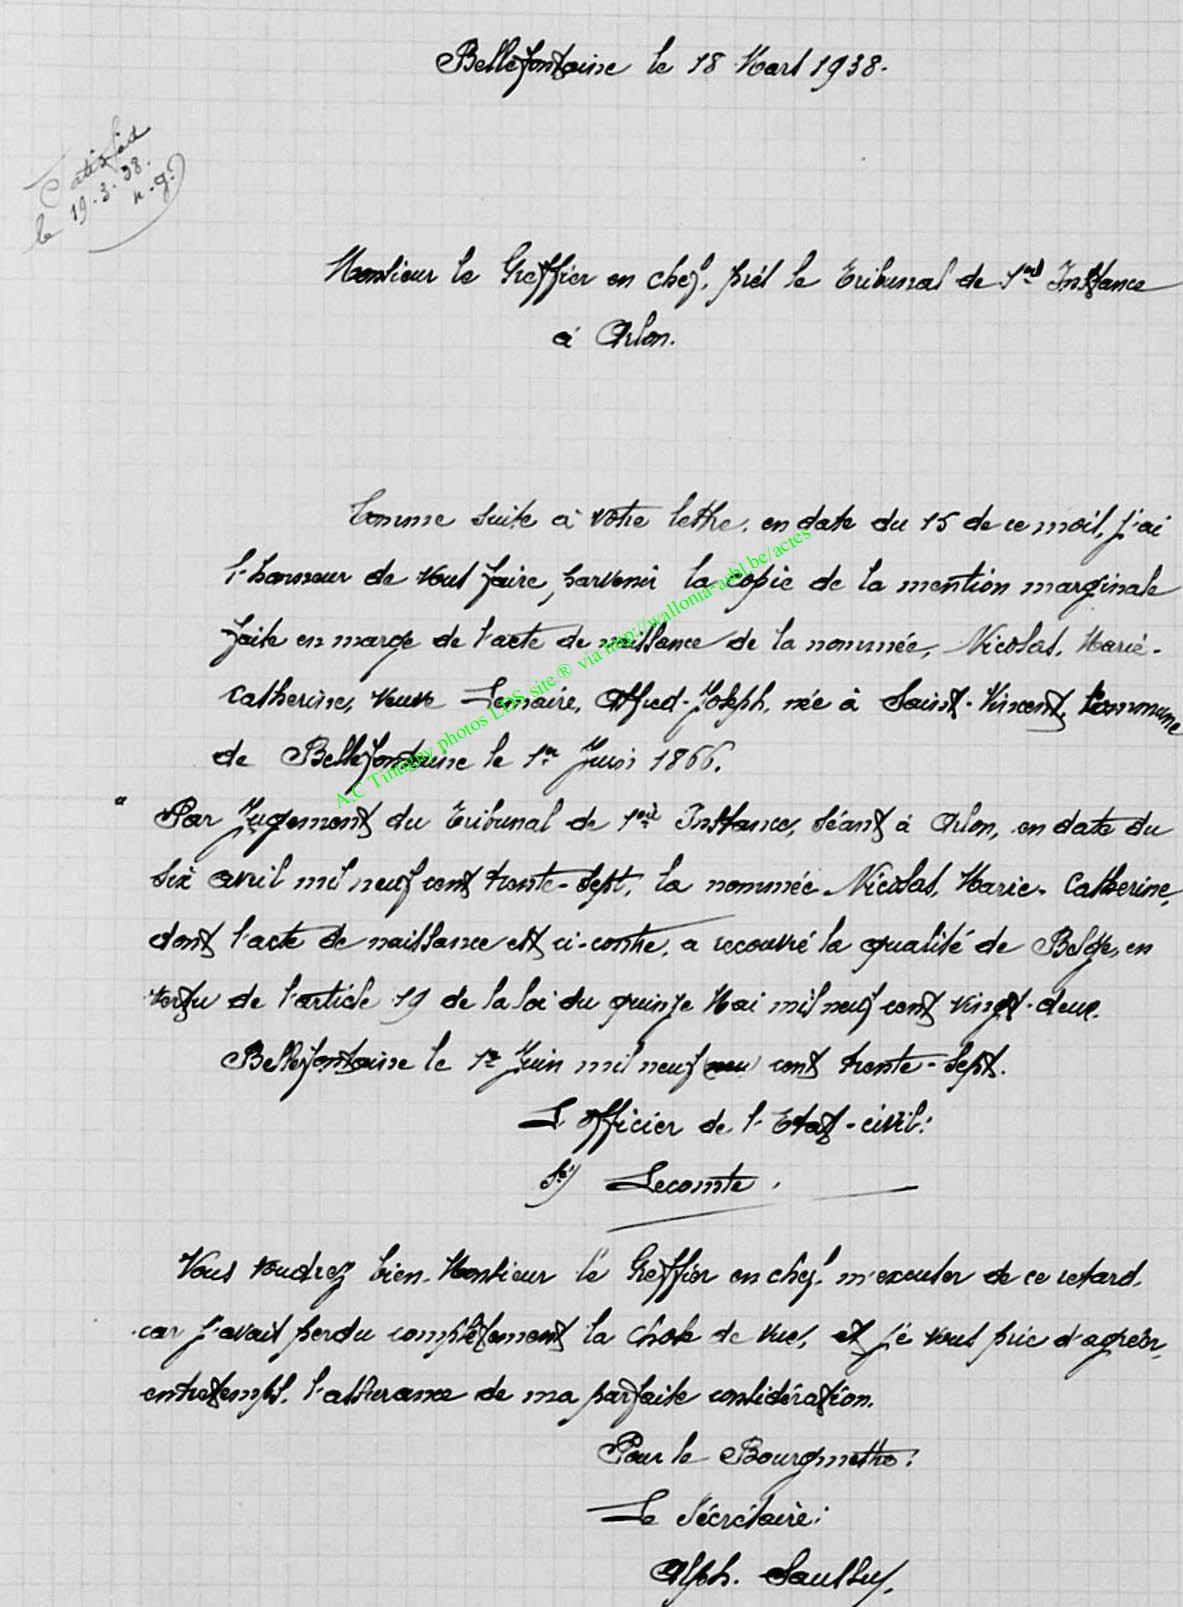 Bellefontaine le 18 Mars 1938.
Satisfait
le 19.3.38.
n.g.
Monsieur le Greffier en chef, près le Tribunal de 1ère Instance
à Arlon.
Comme suite à votre lettre, en date du 15 de ce mois, j'ai
l'honneur de vous faire, parvenir la copie de la mention marginale
faite en marge de l'acte de naissance de la nommée, Nicolas, Marie-
Catherine, veuve Lemaire, Alfred-Joseph, née à Saint-Vincent, Commune
de Bellefontaine le 1er Juin 1866.
A.C Tintigny photos LDS site ® via http://wallonia-asbl.be/actes
" Par Jugement du Tribunal de 1ère Instance, séant à Arlon, en date du
six avril mil neuf cent trente-sept, la nommée Nicolas, Marie-Catherine,
dont l'acte de naissance est ci-contre, a recouvré la qualité de Belge, en
vertu de l'article 19 de la loi du quinze Mai mil neuf cent vingt-deux.
Bellefontaine le 1er Juin mil neuf cent trente-sept.
L'officier de l'Etat-civil:
(sé) Lecomte.
Vous voudrez bien Monsieur le Greffier en chef m'excuser de ce retard,
car j'avais perdu complètement la chose de vue, et je vous prie d'agréer,
entretemps, l'assurance de ma parfaite considération.
Pour le Bourgmestre:
Le Sécrétaire:
Alph. Saussu.